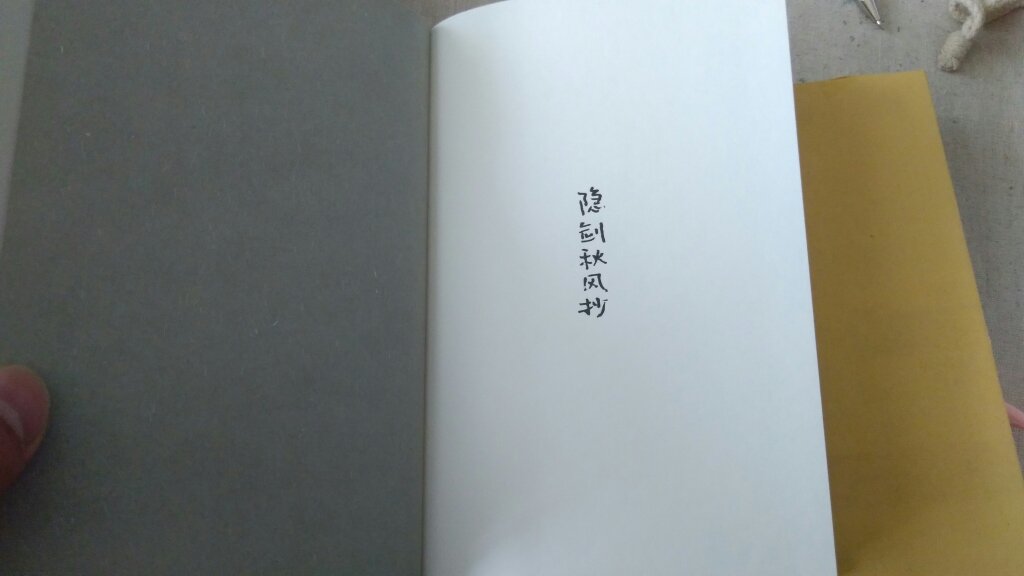 隐剑秋风抄